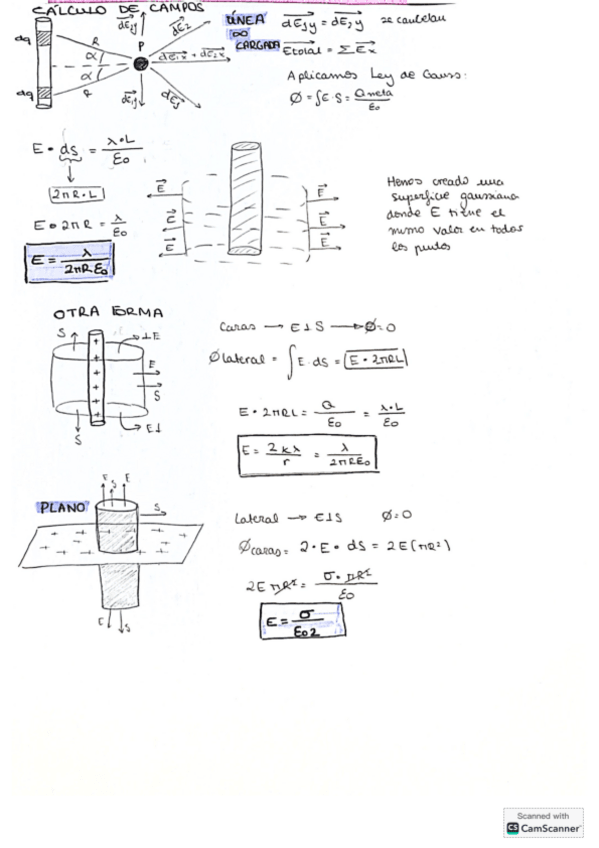 CÁLCULO DE CAMPOS
dq
dq
R
R
α
α
P
dE₁y
dE₂
dE₁x + dE₂x
LÍNEA
∞
CARGADA
dE₁y = dE₂y se cancelan
Etotal = ΣEx
Aplicamos Ley de Gauss:
Ø = ∫E·S = Qneta/ε₀
E · ds = λ·L/ε₀
2πR·L
E · 2πR = λ/ε₀
E = λ/2πRε₀
E E
E E
E E
Hemos creado una
superficie gaussiana
donde E tiene el
mismo valor en todos
los puntos
OTRA FORMA
S ⊥E
E
S
S E⊥
Caras → E⊥S → Ø=0
Ølateral = ∫E·ds = E·2πRL
E·2πRL = Q/ε₀ = λ·L/ε₀
E = 2kλ/r = λ/2πRε₀
PLANO
E S E
S
E S
Lateral → E⊥S Ø=0
Øcaras = 2·E·ds = 2E(πR²)
2EπR² = σ·πR²/ε₀
E = σ/ε₀2
Scanned with
CS CamScanner